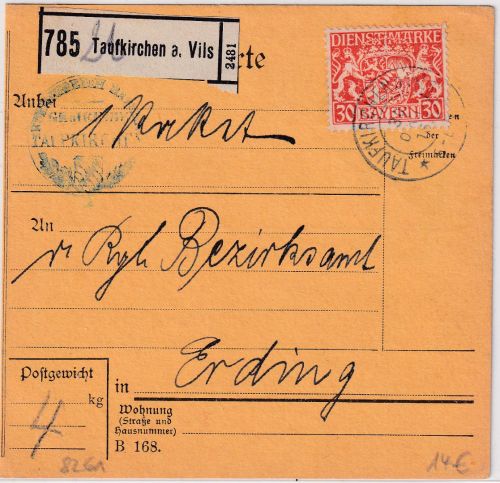 785 Taufkirchen a. Vils 2481
rte
DIENSTMARKE
30 BAYERN 30
Anbei
1 Paket
TAUFKIR
der
Freimarken
An
Kgl Bezirksamt
Erding
Postgewicht
kg
4
in
Wohnung
(Straße und
Hausnummer)
B 168.
14€